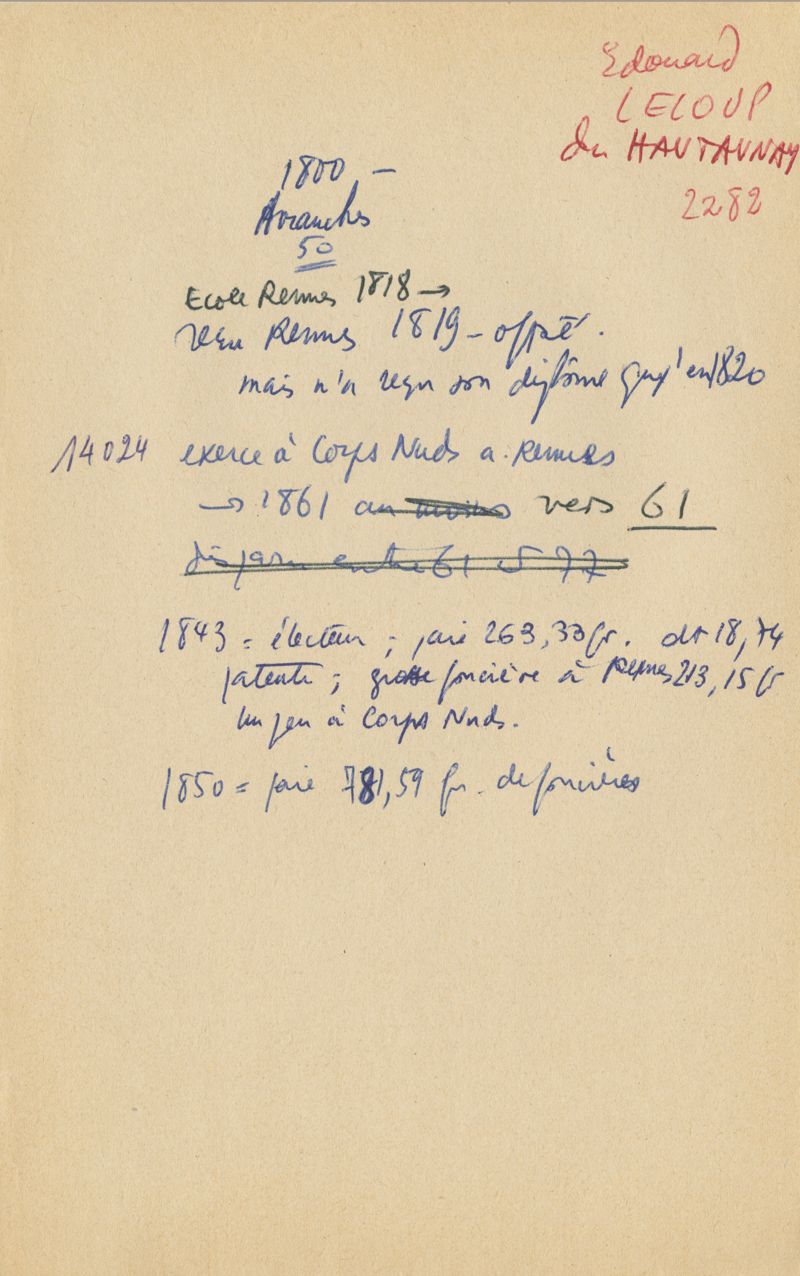 Edouard
LELOUP
du HAUTAUNAY
2282
1800 –
Avranches
50
Ecole Rennes 1818 →
reçu Rennes 1819 –
mais n'a reçu son diplôme qu'en 1820
14024 exerce à Corps Nuds a. Rennes
→ 1861 au moins vers 61
disparu entre 61 et 77
1843 = électeur ; paie 263,33 fr. dt 18,74
patente ; grosse foncière à Rennes 213,15 fr
un peu à Corps Nuds.
1850 = paie 781,59 fr. de foncières